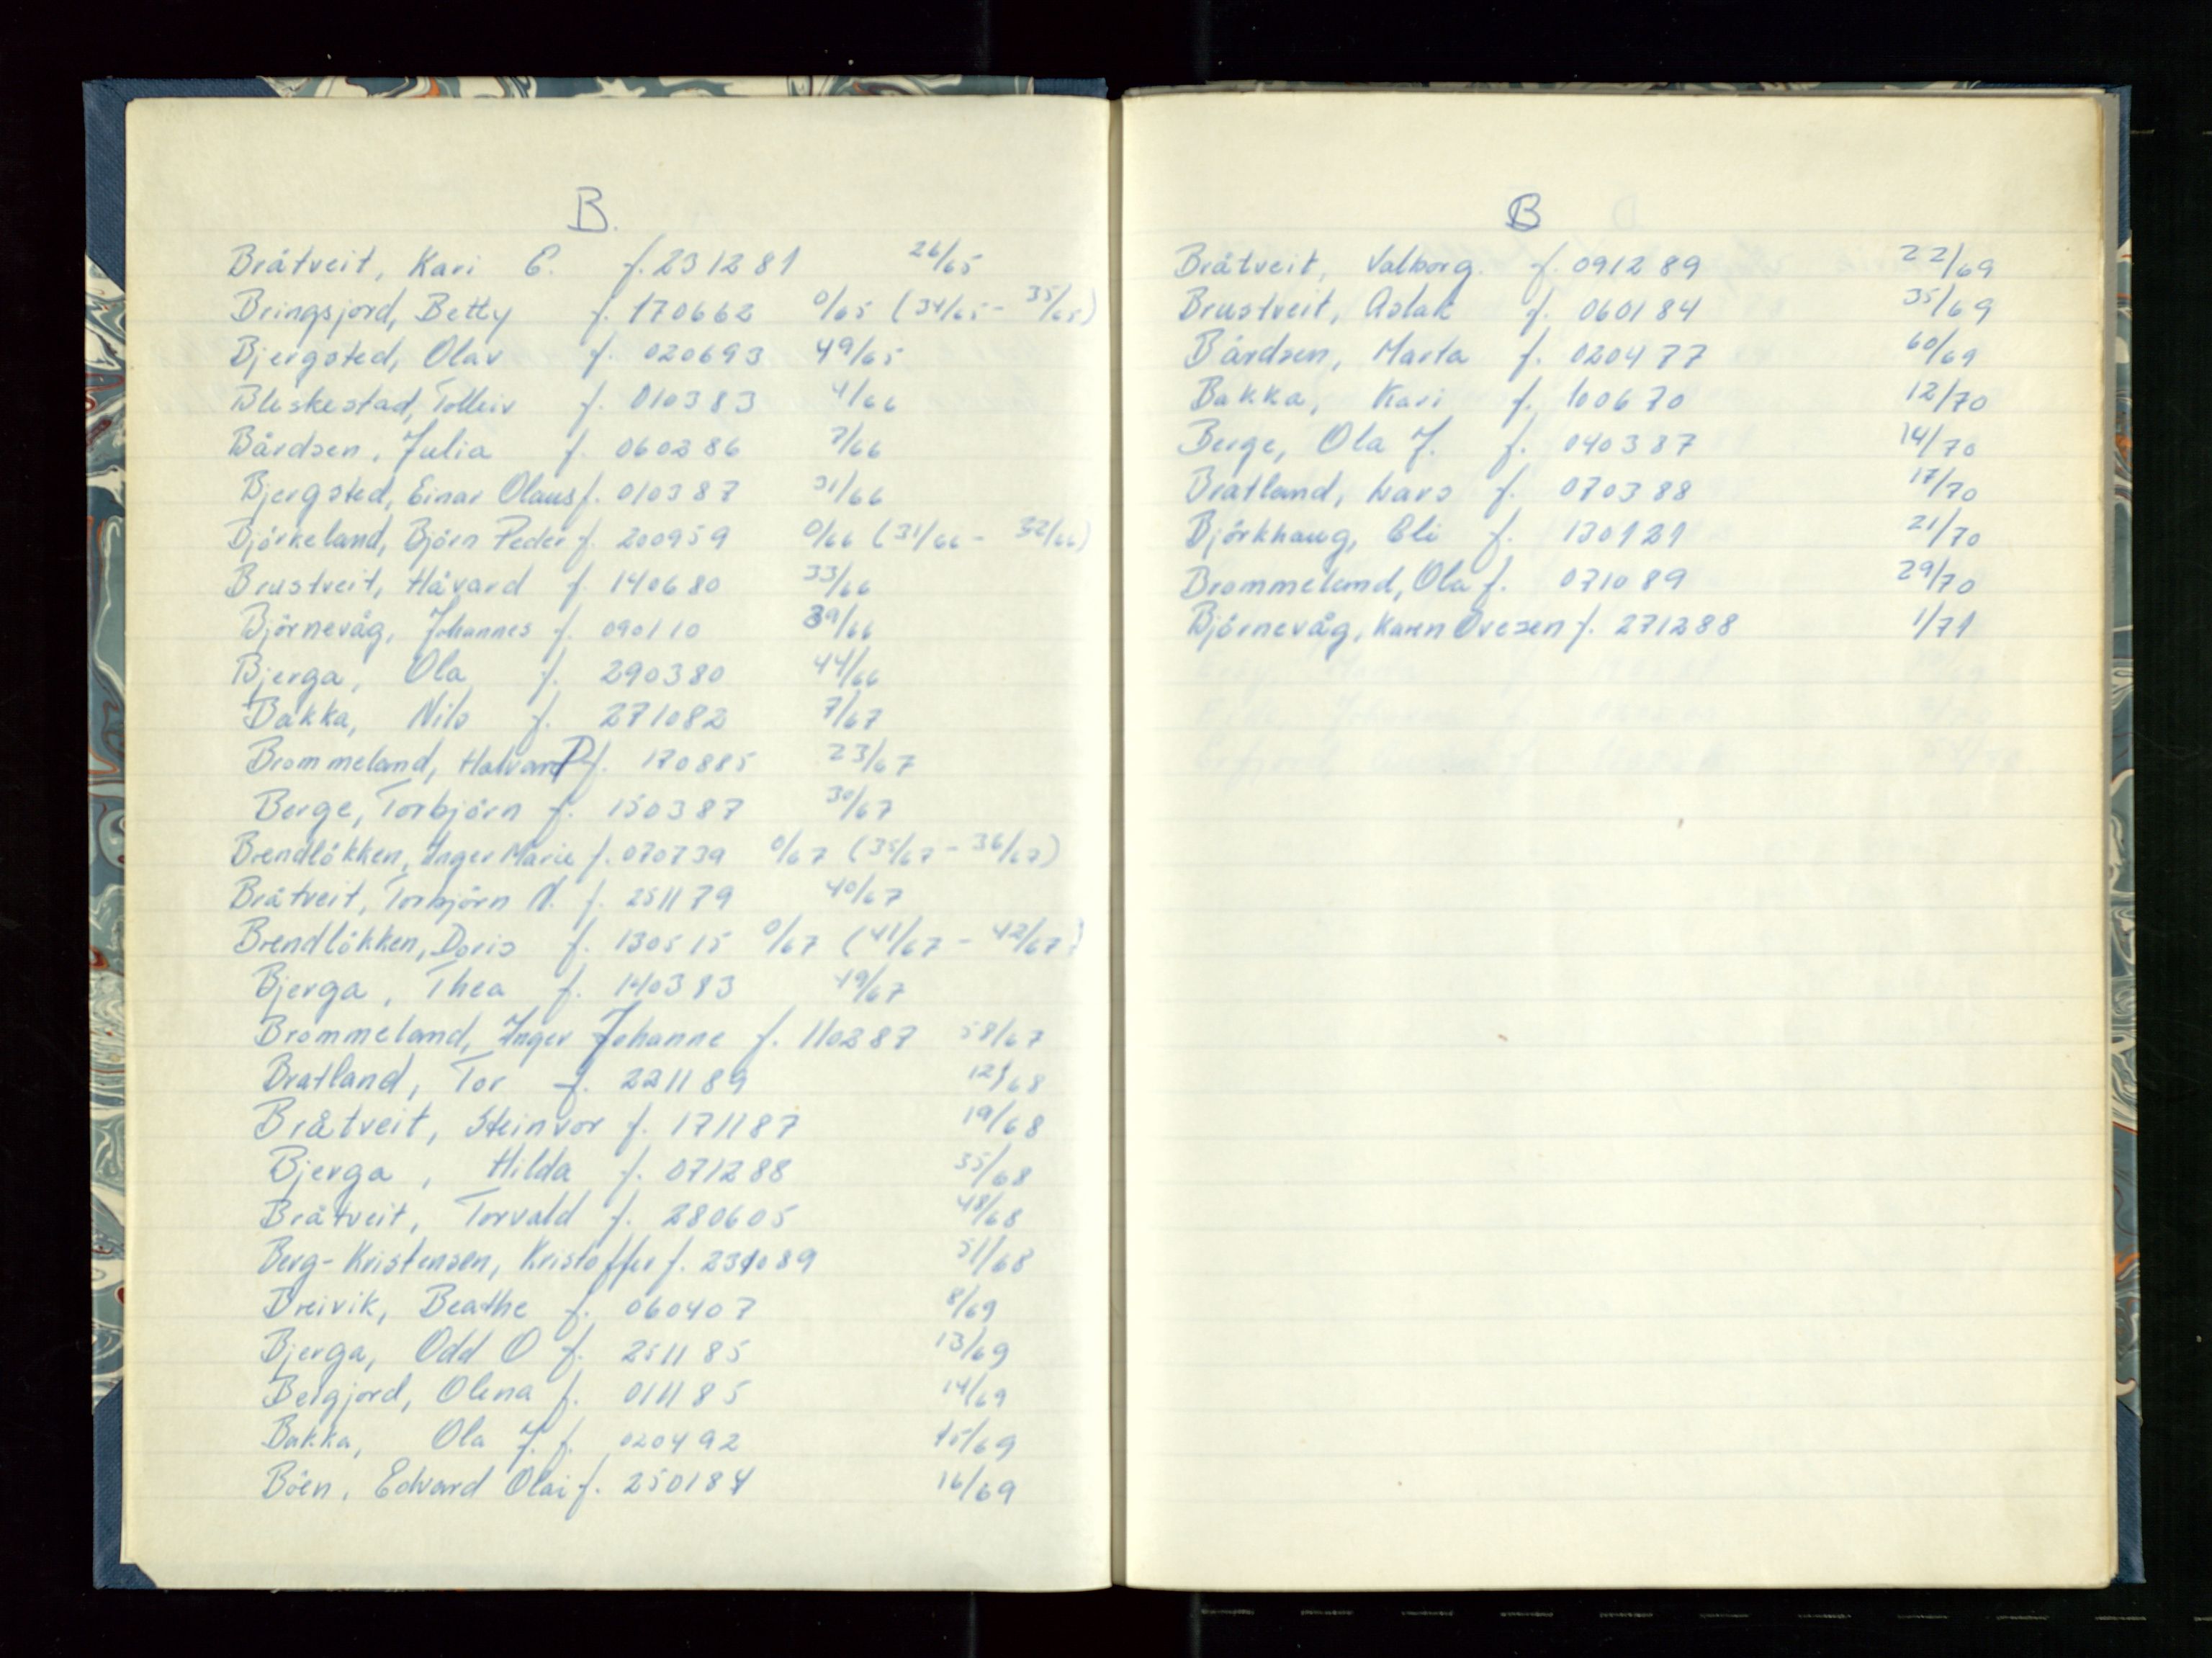 B.
Bråtveit, Kari E. f. 231281 26/65
Bringsjord, Betty f. 170662 0/65 (34/65 - 35/65)
Bjergsted, Olav f. 020693 49/65
Bleskestad, Tolleiv f. 010383 4/66
Bårdsen, Julia f. 060286 7/66
Bjergsted, Einar Olaus f. 010387 31/66
Björkeland, Björn Peder f. 200959 0/66 (31/66 - 32/66)
Brustveit, Håvard f. 140680 33/66
Björnevåg, Johannes f. 090110 39/66
Bjerga, Ola f. 290380 44/66
Bakka, Nils f. 271082 7/67
Brommeland, Halvard f. 170885 23/67
Berge, Torbjörn f. 150387 30/67
Brendlökken, Inger Marie f. 070739 0/67 (35/67 - 36/67)
Bråtveit, Torbjörn N. f. 251179 40/67
Brendlökken, Doris f. 130515 0/67 (41/67 - 42/67)
Bjerga, Thea f. 140383 49/67
Brommeland, Inger Johanne f. 110287 58/67
Bratland, Tor f. 221189 12/68
Bråtveit, Steinvor f. 171187 19/68
Bjerga, Hilda f. 071288 35/68
Bråtveit, Torvald f. 280605 48/68
Berg-Kristensen, Kristoffer f. 231089 51/68
Breivik, Beathe f. 060407 8/69
Bjerga, Odd O f. 251185 13/69
Bergjord, Olena f. 011185 14/69
Bakka, Ola J. f. 020492 15/69
Böen, Edvard Olai f. 250184 16/69
B
Bråtveit, Valborg. f. 091289 22/69
Brustveit, Aslak f. 060184 35/69
Bårdsen, Marta f. 020477 60/69
Bakka, Kari f. 100670 12/70
Berge, Ola J. f. 040387 14/70
Bratland, Lars f. 070388 17/70
Björkhaug, Eli f. 130121 21/70
Brommeland, Ola f. 071089 29/70
Björnevåg, Karen Ovesen f. 271288 1/71